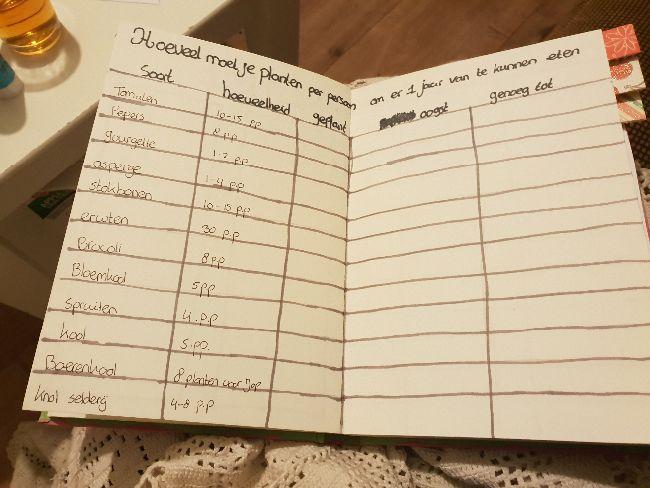 Hoeveel moet je planten per persoon om er 1 jaar van te kunnen eten
Soort hoeveelheid geplant oogst genoeg tot
Tomaten 10-15 pp
Pepers 8 p.p
Courgette 1-2 p.p
asperge 1-4 p.p
stokbonen 10-15 p.p
erwten 30 p.p
Broccoli 8 p.p
Bloemkool 5 pp
spruiten 4.p.p
kool 5.pp.
Boerenkool 8 planten voor
knol selderij 4-8 p.p